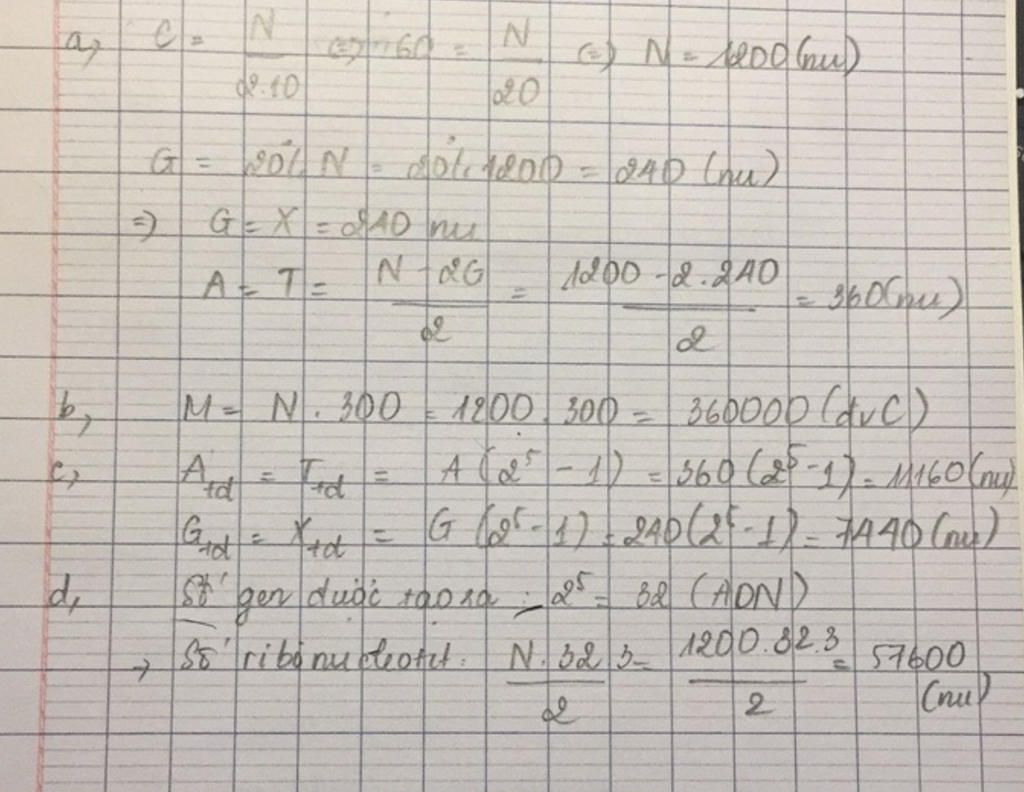 a, C = N/2.10 <=> 60 = N/20 (=) N = 1200 (nu)
G = 20% N = 20%.1200 = 240 (nu)
=> G = X = 240 nu
A = T = N - 2G/2 = 1200 - 2.240/2 = 360(nu)
b, M = N . 300 = 1200 . 300 = 360000 (dvC)
c, Atd = Ttd = A (2^5 - 1) = 360 (2^5 - 1) = 11160 (nu)
Gtd = Xtd = G (2^5 - 1) = 240 (2^5 - 1) = 7440 (nu)
d, Số gen được tạo ra : 2^5 = 32 (ADN)
=> Số ribônucleotit : N . 32/2 3 = 1200.32.3/2 = 57600 (nu)